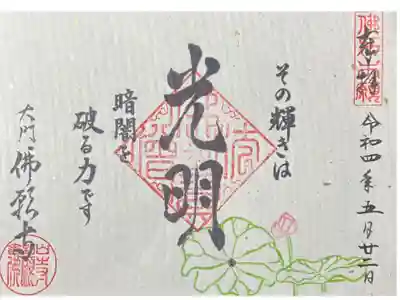 奉拝
令和四年五月廿二日
その輝きは
光明
暗闇を
破る力です
大門
佛願寺